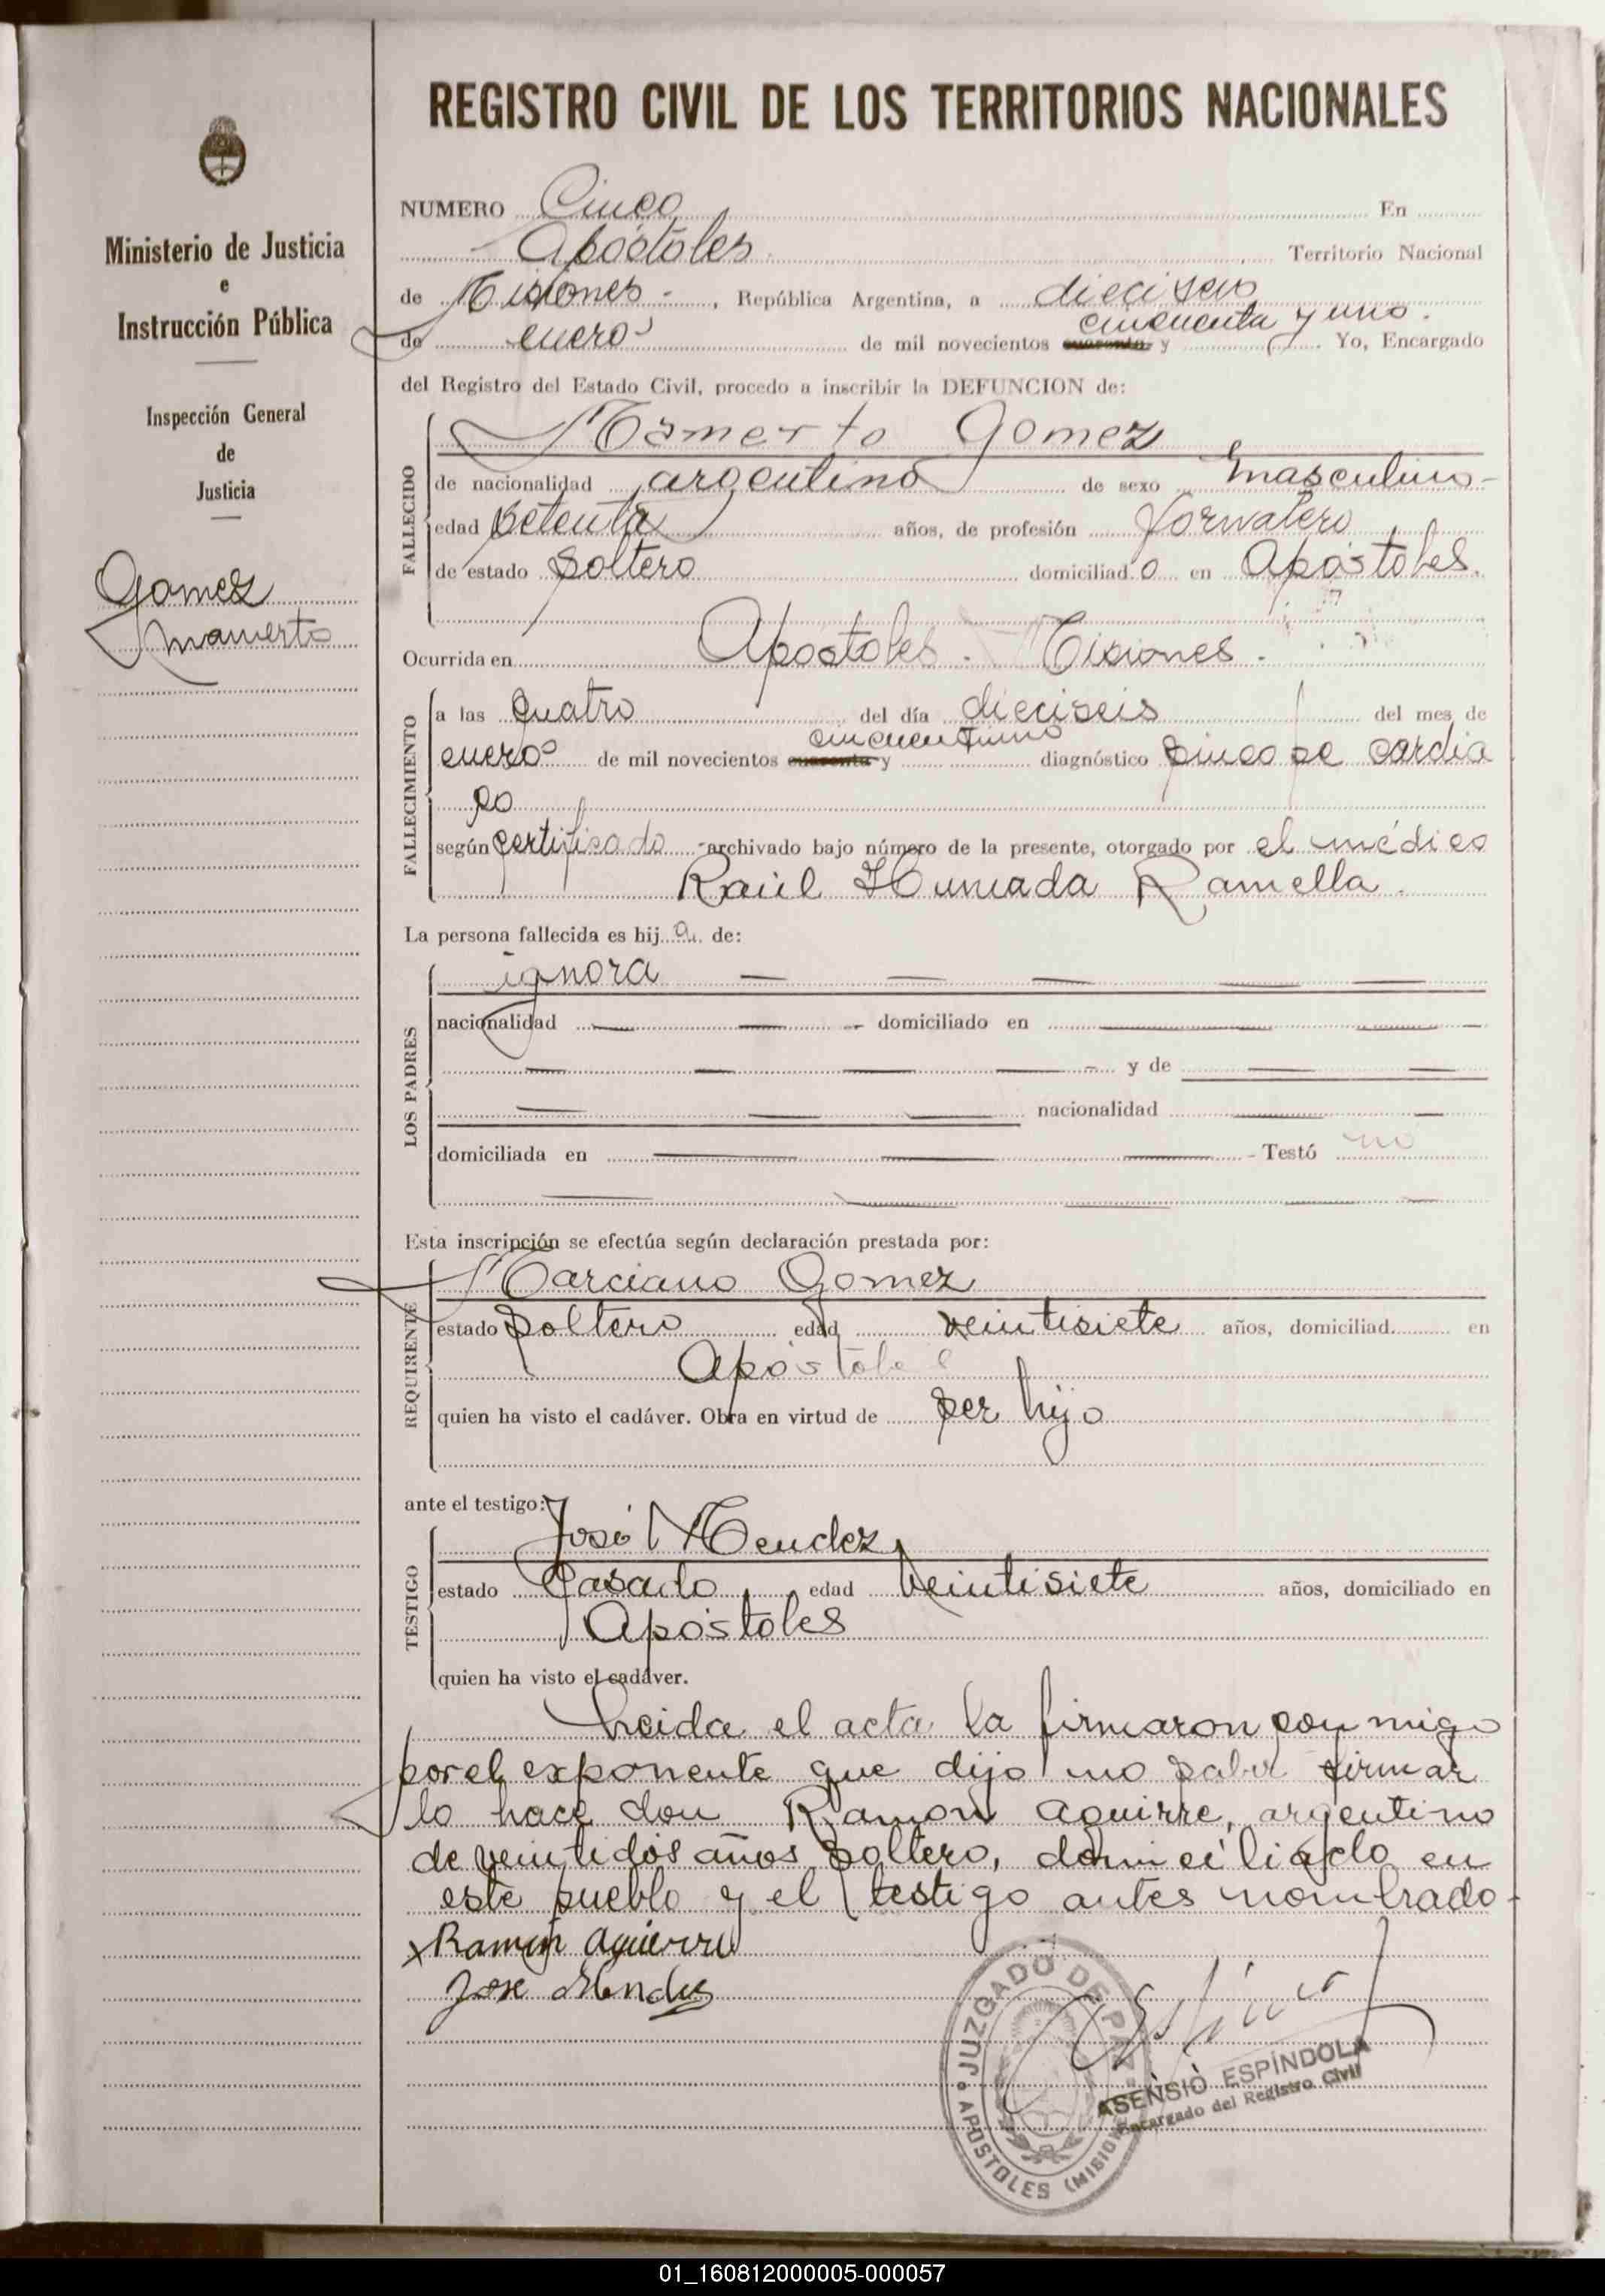 REGISTRO CIVIL DE LOS TERRITORIOS NACIONALES
Ministerio de Justicia
e
Instrucción Pública
Inspección General
de
Justicia
Gomez
Mamerto
NUMERO Cinco En
Apóstoles Territorio Nacional
de Misiones, República Argentina, a dieciseis
cincuenta y uno.
de enero de mil novecientos cuarenta y Yo, Encargado
del Registro del Estado Civil, procedo a inscribir la DEFUNCION de:
FALLECIDO
Mamerto Gomez
de nacionalidad argentino de sexo masculino
edad setenta años, de profesión Jornalero
de estado soltero domiciliado en Apóstoles.
Ocurrida en Apostoles. Misiones.
FALLECIMIENTO
a las cuatro del día dieciseis del mes de
cincuentiuno
enero de mil novecientos cuarenta y diagnóstico sincope cardia
co
según certificado archivado bajo número de la presente, otorgado por el médico
Raúl Ramella.
La persona fallecida es hij de:
LOS PADRES
ignora
nacionalidad domiciliado en
y de
nacionalidad
domiciliada en Testó no
Esta inscripción se efectúa según declaración prestada por:
REQUIRENTE
Marciano Gomez
estado soltero edad veintisiete años, domiciliad en
Apóstoles
quien ha visto el cadáver. Obra en virtud de ser hijo
ante el testigo:
TESTIGO
José Mendez
estado casado edad veintisiete años, domiciliado en
Apóstoles
quien ha visto el cadáver.
Leida el acta la firmaron conmigo
por el exponente que dijo no saber firmar
lo hace don Ramón Aguirre, argentino
de veintidós años soltero, domiciliado en
este pueblo y el testigo antes nombrado
x Ramon Aguirre
Jose Mendes
JUZGADO DE PAZ
APOSTOLES (MISIONES)
ASENSIO ESPÍNDOLA
Encargado del Registro Civil
01_160812000005-000057